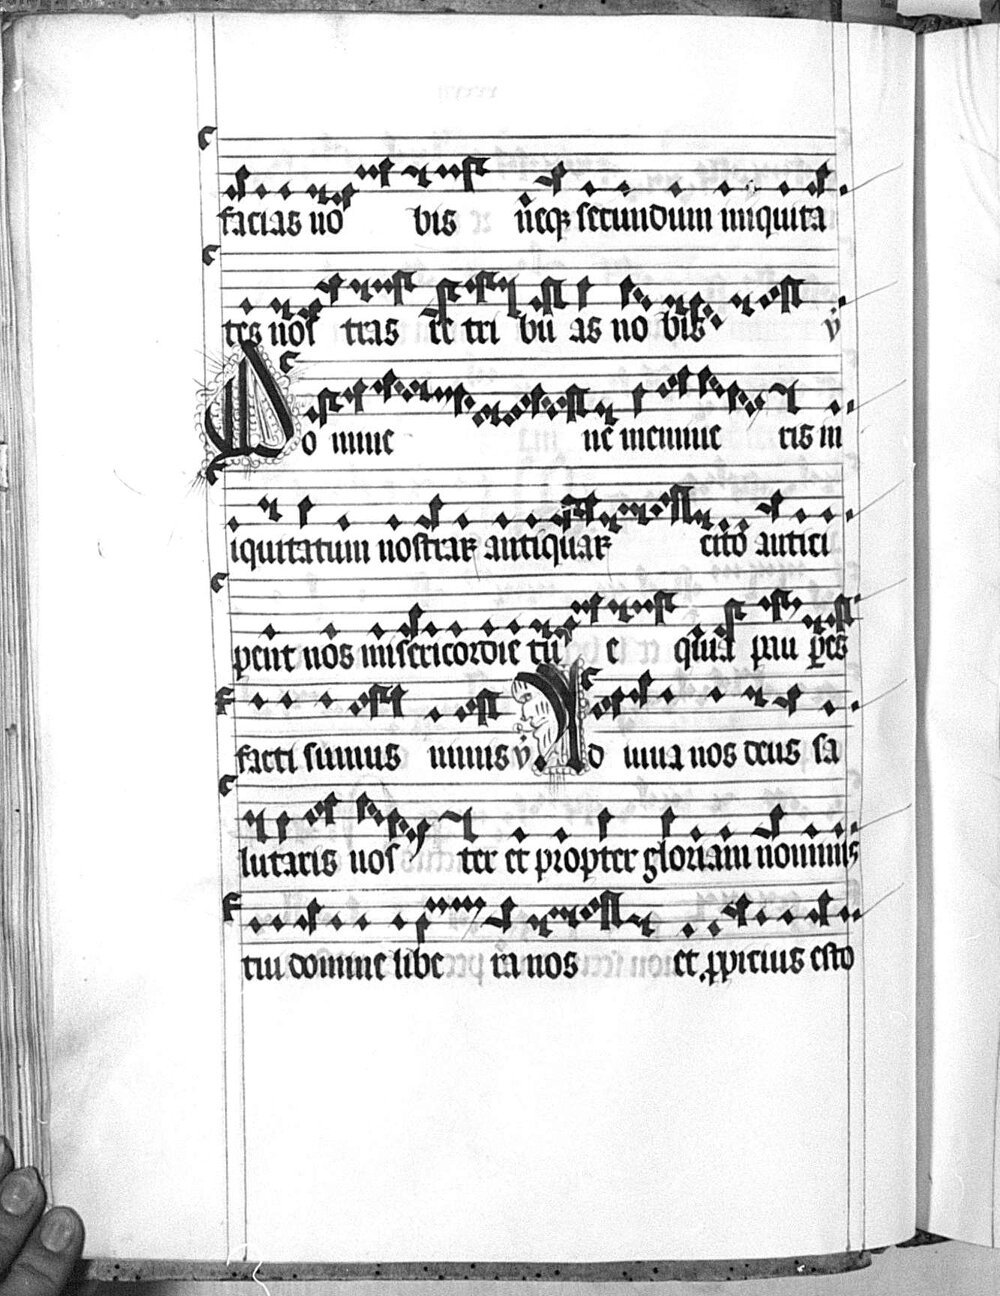 facias no bis neqꝫ secundum iniquita
tes nos tras re tri bu as no bis ℣
Do mine ne memine ris in
iquitatum nostraꝝ antiquaꝝ cito antici
pent nos misericordie tu e quia pau peres
facti sumus nimis ℣ Ad iuua nos deus sa
lutaris nos ter et propter gloriam nominis
tui domine libe ra nos et ꝓpicius esto